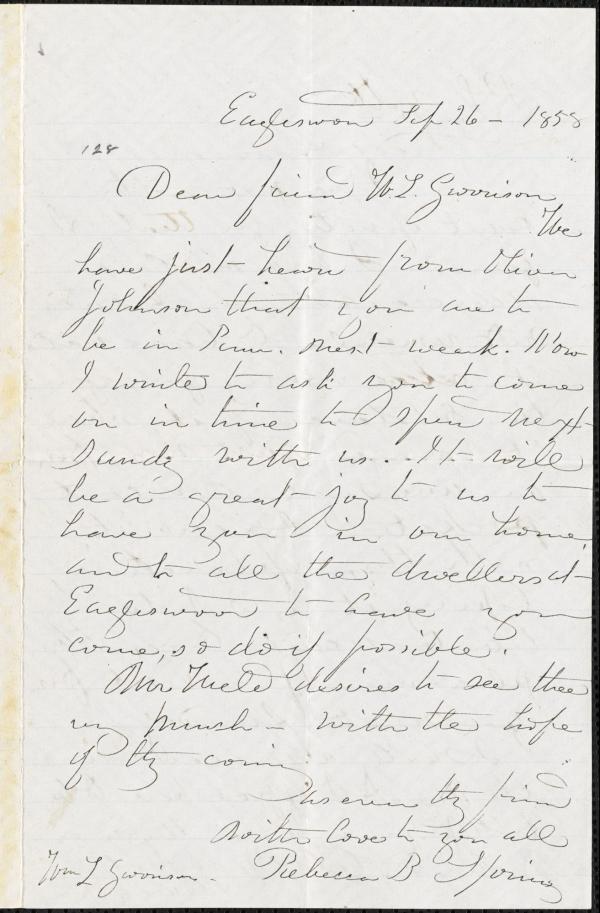 Eagleswood Sep 26 - 1858
128
Dear friend W. L. Garrison
We
have just heard from Oliver
Johnson that you are to
be in Penn. next week. Now
I write to ask you to come
on in time to spend next
Sunday with us. It will
be a great joy to us to
have you in our home,
and to all the dwellers at
Eagleswood to have you
come, so do if possible.
Mr Weld desires to see thee
very much - with the hope
of thy coming
as ever thy friend
with love to you all
Rebecca B Spring
Wm L Garrison.